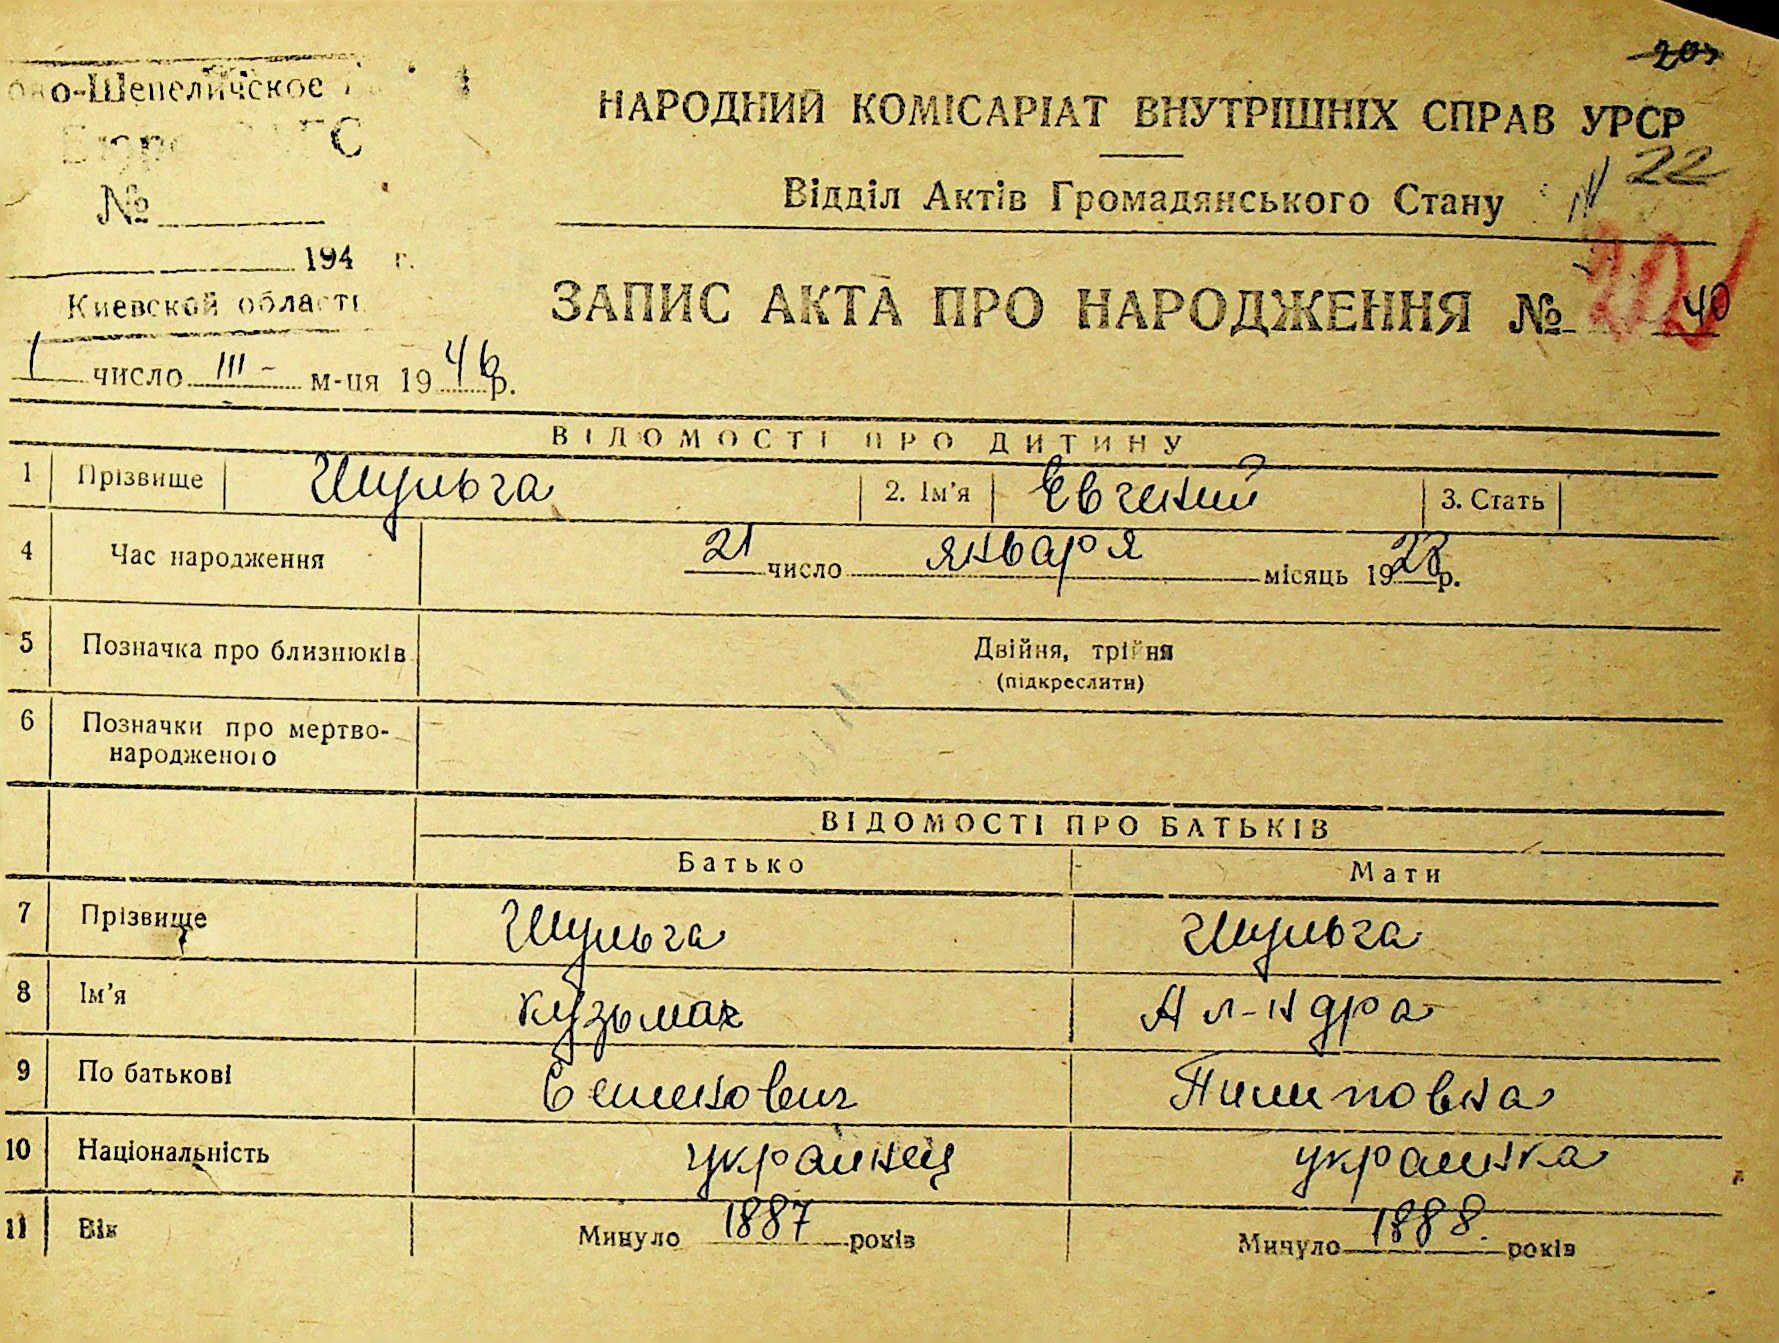 203
о-Шепеличское
НАРОДНИЙ КОМІСАРІАТ ВНУТРІШНІХ СПРАВ УРСР
22
Відділ Актів Громадянського Стану
№
194 г.
Киевской области
ЗАПИС АКТА ПРО НАРОДЖЕННЯ № 201 40
1 число III - м-ця 1946 р.
ВІДОМОСТІ ПРО ДИТИНУ
1 Прізвище Шульга 2. Ім'я Евгений 3. Стать
4 Час народження 21 число января місяць 1928 р.
5 Позначка про близнюків Двійня, трійня
(підкреслити)
6 Позначки про мертво-
народженого
ВІДОМОСТІ ПРО БАТЬКІВ
Батько Мати
7 Прізвище Шульга Шульга
8 Ім'я Кузьма Ал-ндра
9 По батькові Семенович Пилиповна
10 Національність украинец украинка
11 Вік Минуло 1887 років Минуло 1888. років